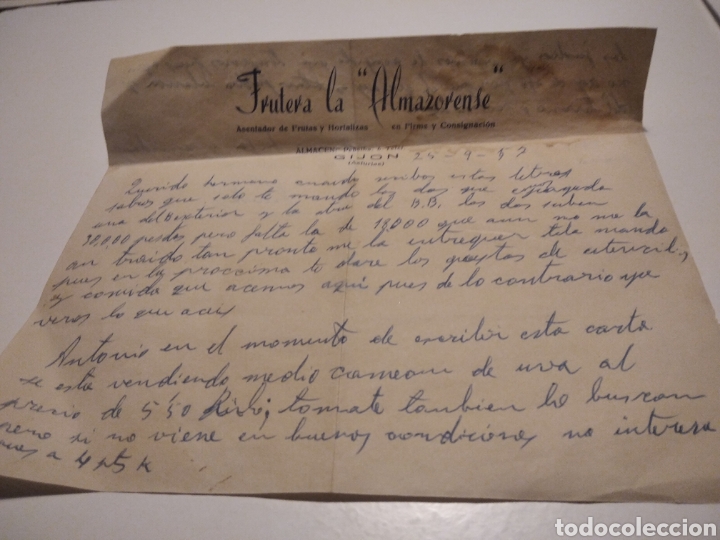 Frutera la "Almazorense"
Asentador de Frutas y Hortalizas en Firme y Consignación
ALMACEN:
GIJON 25-9-57
(Asturias)
Querido hermano cuando recibas estas letras
sabes que solo te mando las dos que
una del exterior y la otra del B.B. las dos suben
pesetas pero falta la de 18,000 que aun no me la
an traido tan pronto me la entreguen tela mando
pues en la procsima te dare los gastos de
y comida que acemos aquí pues de lo contrario ya
veras lo que aces
Antonio en el momento de escribir esta carta
se esta vendiendo medio cameon de uva al
presio de 5'50 Kilo; tomate tambien lo buscan
pero si no viene en buenas condiciones no interesa
pues a 4 pts K
todocoleccion
todocoleccion.net